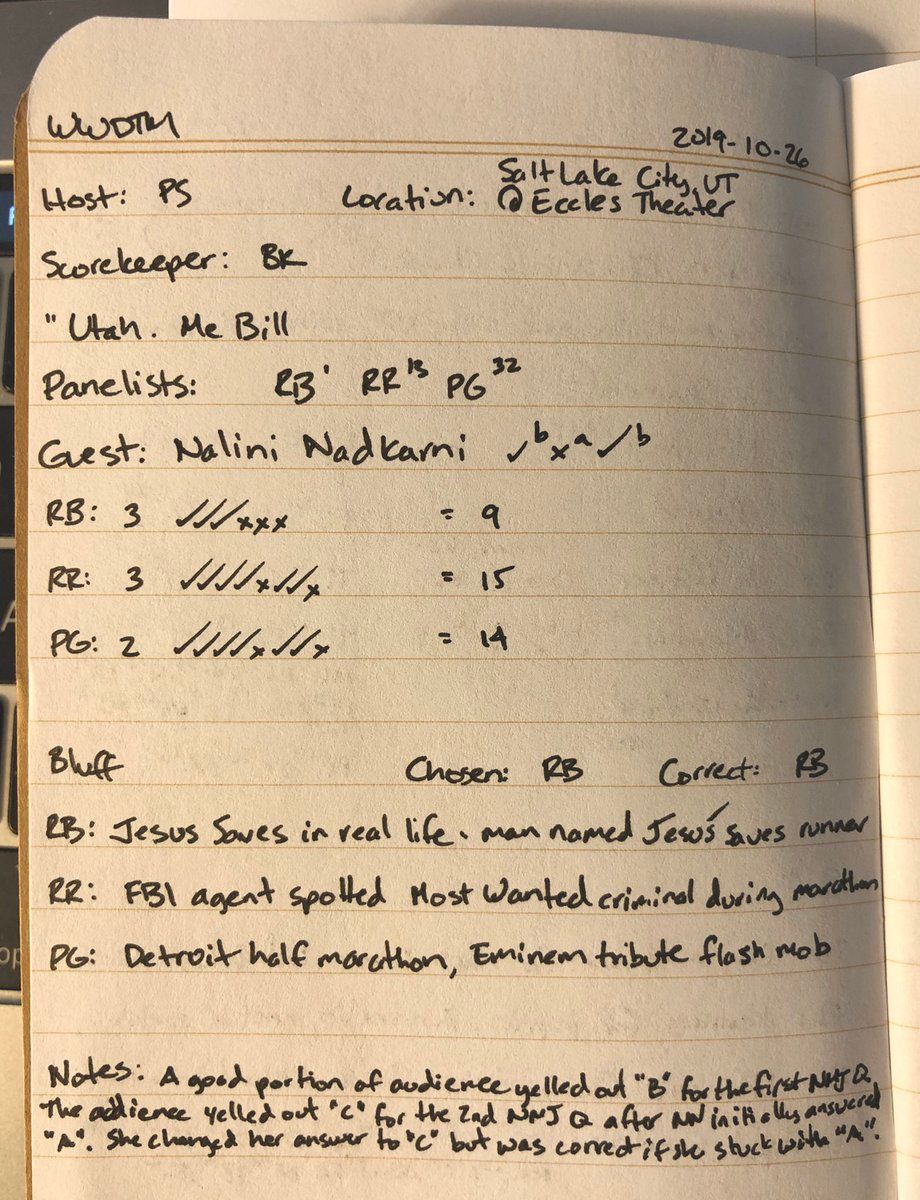 WWDTM
2019-10-26
Host: PS Location: Salt Lake City, UT
@ Eccles Theater
Scorekeeper: BK
" Utah. Me Bill
Panelists: RB¹ RR¹³ PG³²
Guest: Nalini Nadkarni ✓ᵇ×ᵃ✓ᵇ
RB: 3 ✓✓✓××× = 9
RR: 3 ✓✓✓✓×✓✓× = 15
PG: 2 ✓✓✓✓×✓✓× = 14
Bluff Chosen: RB Correct: RB
RB: Jesus Saves in real life. man named Jesus saves runner
RR: FBI agent spotted Most Wanted criminal during marathon
PG: Detroit half marathon, Eminem tribute flash mob
Notes: A good portion of audience yelled out "B" for the first NMJ Q.
The audience yelled out "C" for the 2nd NMJ Q after NN initially answered
"A". She changed her answer to "C" but was correct if she stuck with "A".